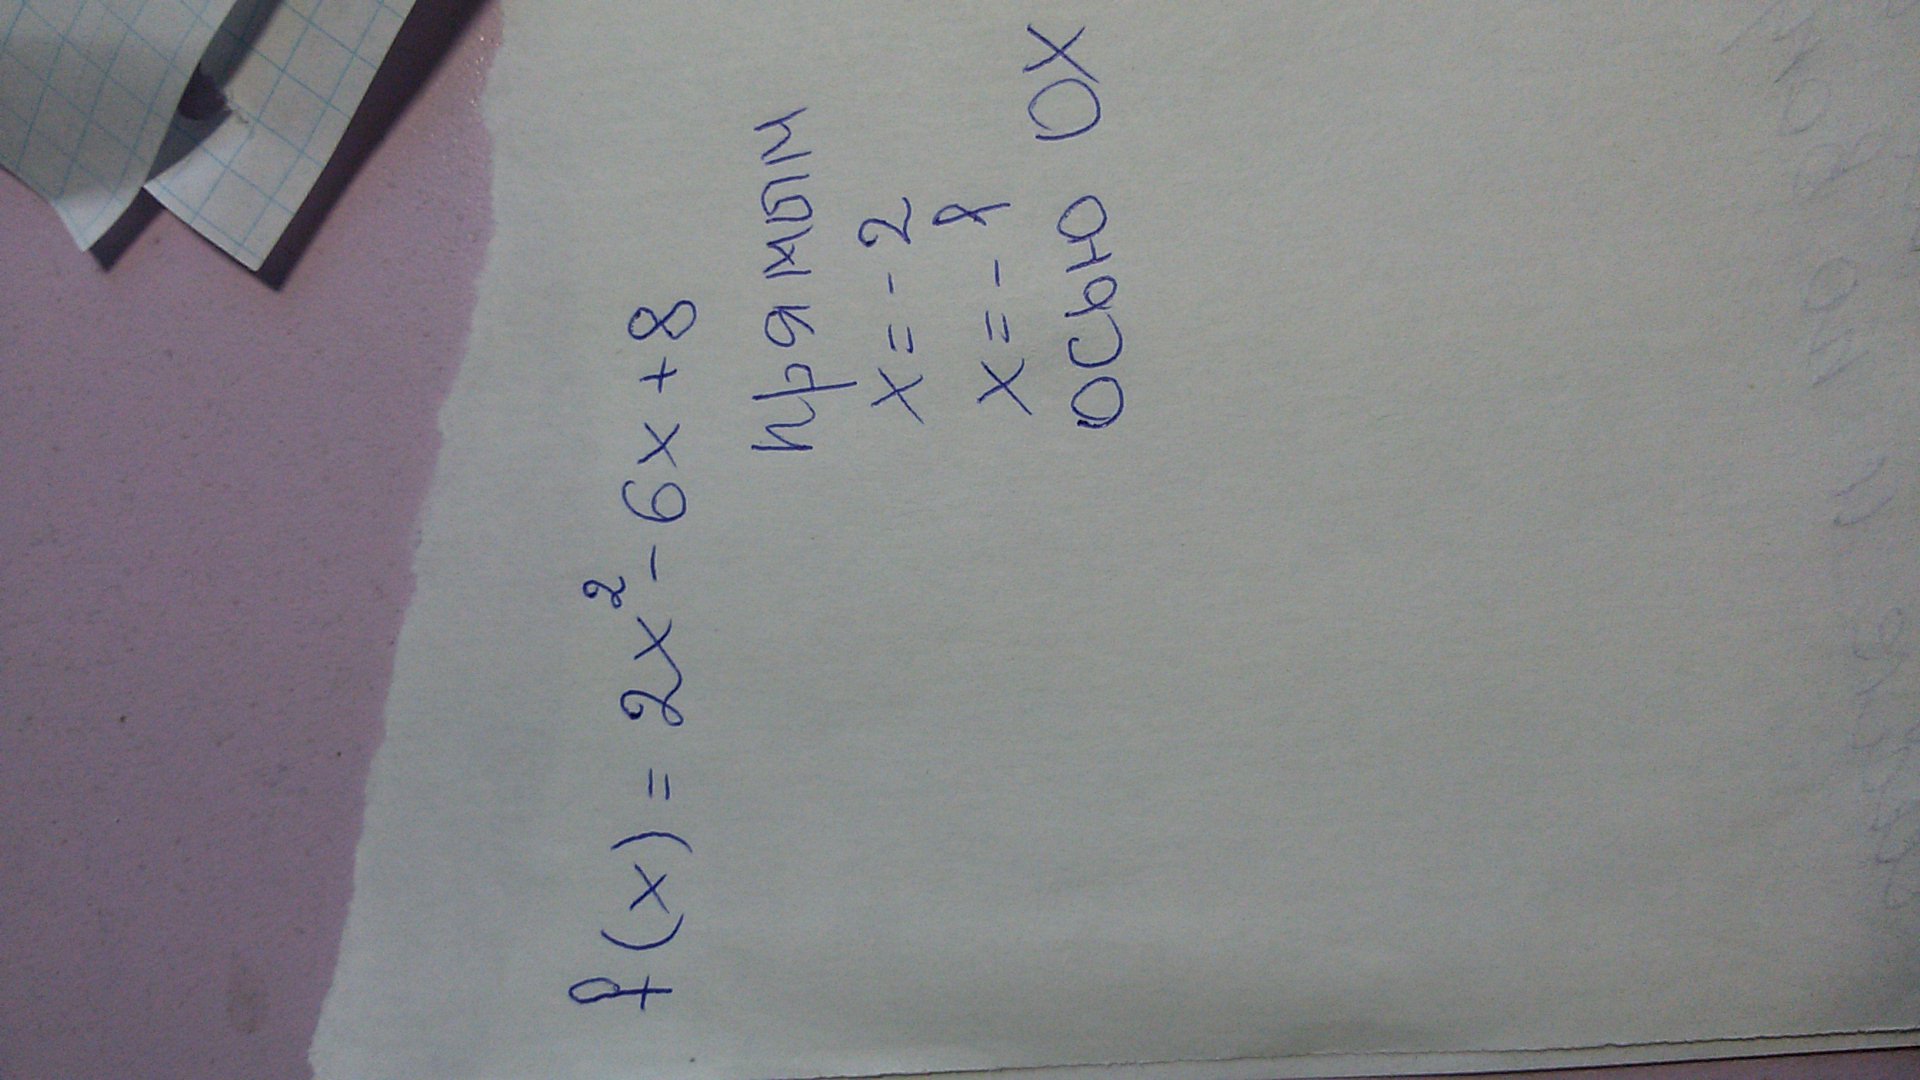 f(x) = 2x² - 6x + 8
прямым
x = - 2
x = - 1
осью OX